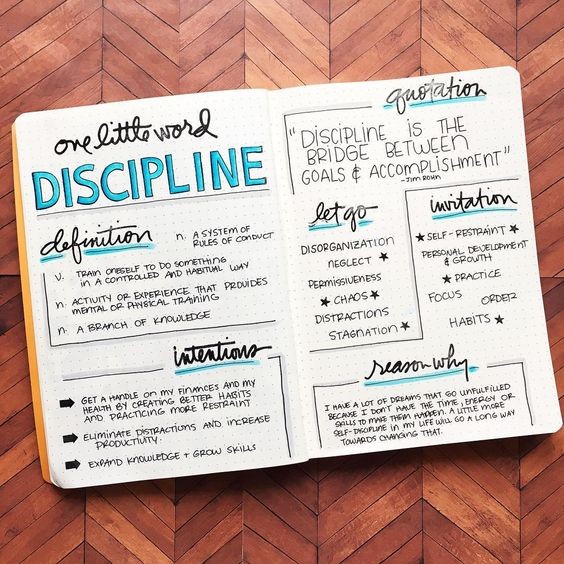 one little word
DISCIPLINE
definition
n. A SYSTEM OF
RULES OF CONDUCT
v. TRAIN ONESELF TO DO SOMETHING
IN A CONTROLLED AND HABITUAL WAY
n. ACTIVITY OR EXPERIENCE THAT PROVIDES
MENTAL OR PHYSICAL TRAINING
n. A BRANCH OF KNOWLEDGE
intentions
GET A HANDLE ON MY FINANCES AND MY
HEALTH BY CREATING BETTER HABITS
AND PRACTICING MORE RESTRAINT
ELIMINATE DISTRACTIONS AND INCREASE
PRODUCTIVITY.
EXPAND KNOWLEDGE + GROW SKILLS
quotation
"DISCIPLINE IS THE
BRIDGE BETWEEN
GOALS & ACCOMPLISHMENT"
-JIM ROHN
let go
DISORGANIZATION
NEGLECT ★
PERMISSIVENESS
★ CHAOS ★
DISTRACTIONS
STAGNATION ★
invitation
★ SELF-RESTRAINT ★
PERSONAL DEVELOPMENT
& GROWTH
★ PRACTICE
FOCUS ORDER
HABITS ★
reason why
I HAVE A LOT OF DREAMS THAT GO UNFULFILLED
BECAUSE I DON'T HAVE THE TIME, ENERGY OR
SKILLS TO MAKE THEM HAPPEN. A LITTLE MORE
SELF-DISCIPLINE IN MY LIFE WILL GO A LONG WAY
TOWARDS CHANGING THAT.